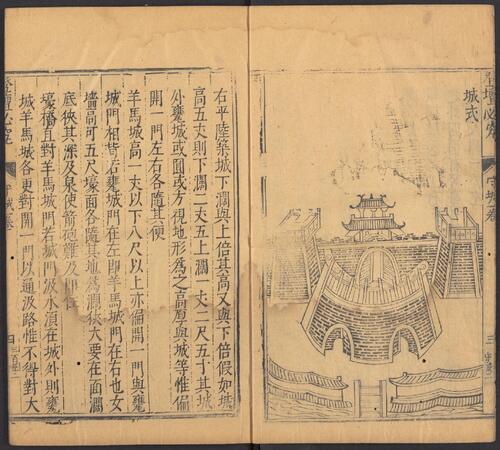 城式
右平陸築城下濶與上倍其高又與下倍假如城
高五丈則下濶二丈五上濶一丈二尺五寸其城
外甕城或圓或方視地形為之高厚與城等惟偏
開一門左右各隨其便
羊馬城高一丈以下八尺以上亦偏開一門與甕
城門相背若甕城門在左即羊馬城門在右也女
墻高可五尺壕面各隨其地為濶狹大要在面濶
底狹其深及泉使箭砲難及即
壕橋直對羊馬城門若城門汲水須在城外則甕
城羊馬城各更對開一門以通汲路惟不得對大
登壇必究
四